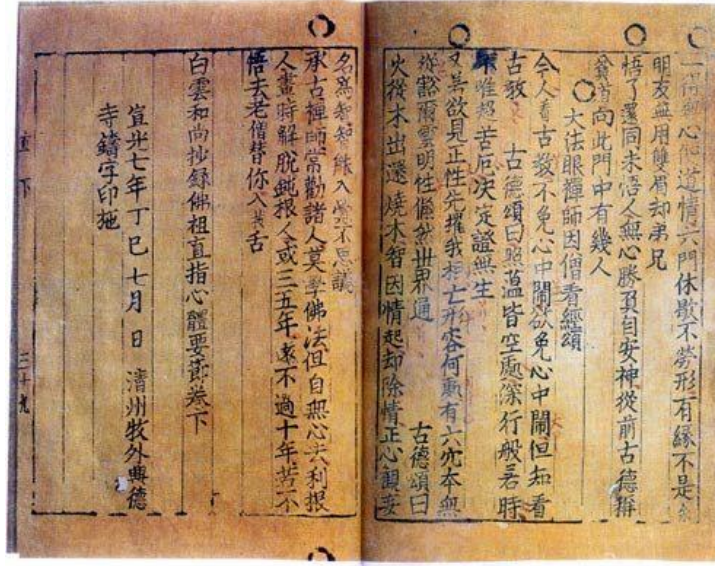 一得無心便道情六門休歇不勞形有緣不是余
朋友無用雙眉却弟兄
悟了還同未悟人無心勝負自安神從前古德稱
貧道向此門中有幾人
大法眼禪師因僧看經頌
今人看古教不免心中鬧欲免心中鬧但知看
古教 古德頌曰照蘊皆空處深行般若時
唯超苦厄決定證無生
又若欲見正性先擢我相亡形容何處有六究本無
從豁爾雲明性翛然世界通 古德頌曰
火從木出還燒木智因情起却除情正心觀妄
名爲智智䏻入無不思議
承古禪師常勸諸人莫學佛法但自無心去利根
人晝時解脫鈍根人或三五年遠不過十年若不
悟去老僧替你入㧞舌
白雲和尚抄錄佛祖直指心體要節卷下
宣光七年丁巳七月 日 清州牧外興德
寺鑄字印施
直下
三十九